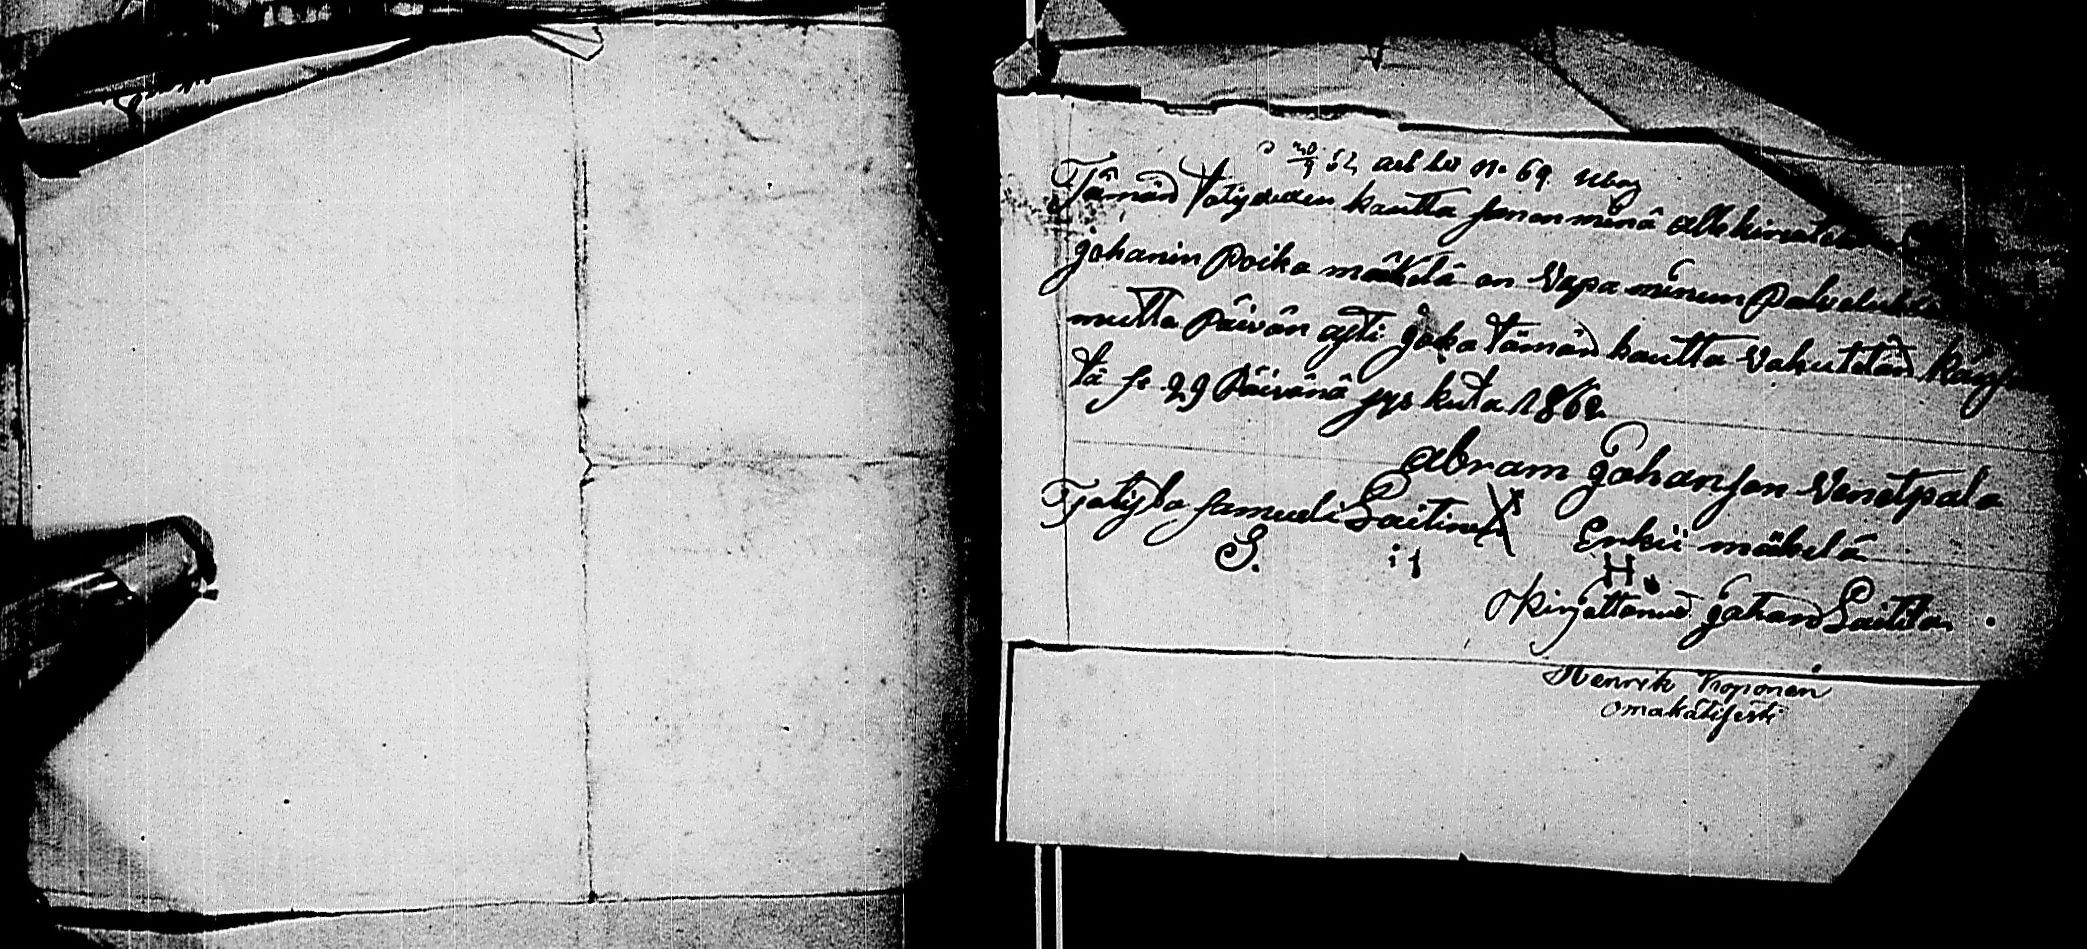 20/9 62 att No 69.
Tämän totystuxen kautta sanon minä allekirjot
johanin Poika mäkelä on Vapa minun Palveluk
mutta Päivän asti joka tämän kautta vakutetan käyf
tä se 29 Päivänä sys kuta 1862
abram Johansson Venetpalo
Totysta samueli Laitinen X Erkii mäkelä
S. H.
kirjottanut Johan Laitila.
Henrik Kroponen
omakätisesti